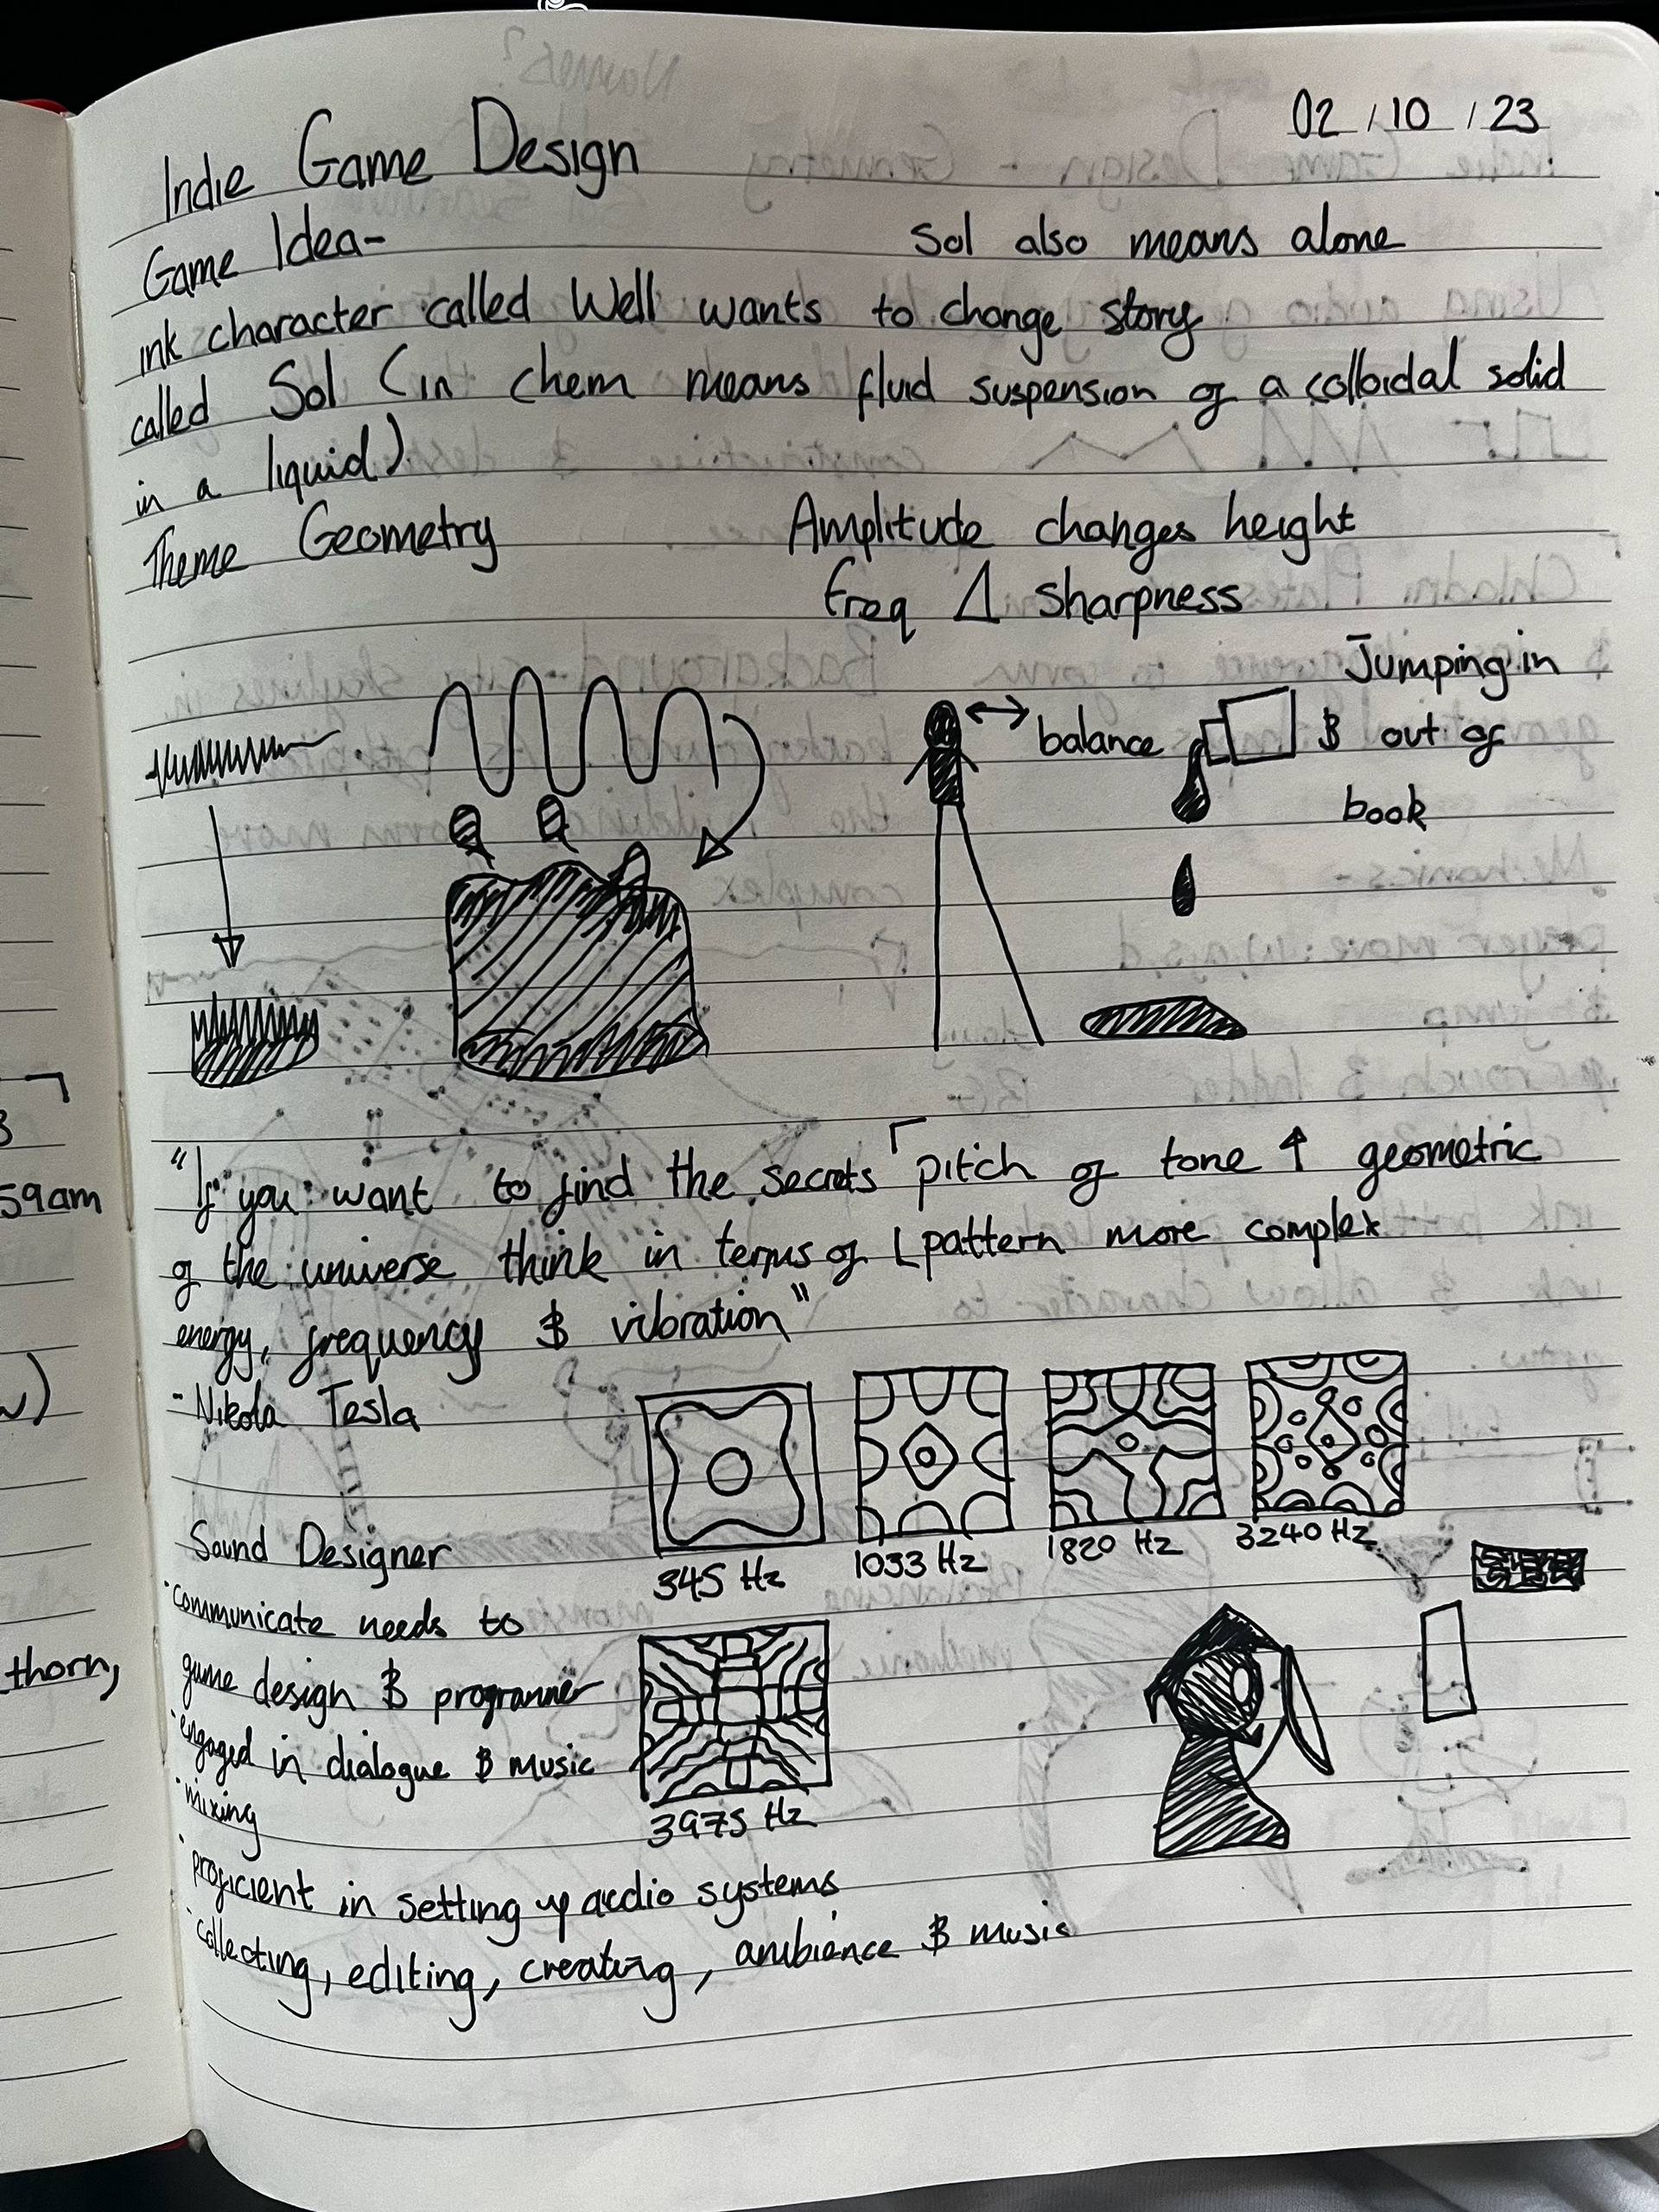 02 / 10 / 23
Indie Game Design
Game Idea-
Sol also means alone
ink character called Well wants to change story
called Sol (in chem means fluid suspension of a colloidal solid
in a liquid)
Theme Geometry
Amplitude changes height
freq Δ sharpness
Jumping in
& out of
book
balance
"If you want to find the secrets
of the universe think in terms of
energy, frequency & vibration"
- Nikola Tesla
pitch of tone ↑ geometric
pattern more complex
345 Hz
1033 Hz
1820 Hz
3240 Hz
3975 Hz
Sound Designer
·communicate needs to
game design & programmer
·engaged in dialogue & music
·mixing
·proficient in setting up audio systems
·collecting, editing, creating, ambience & music
59am
thorn,